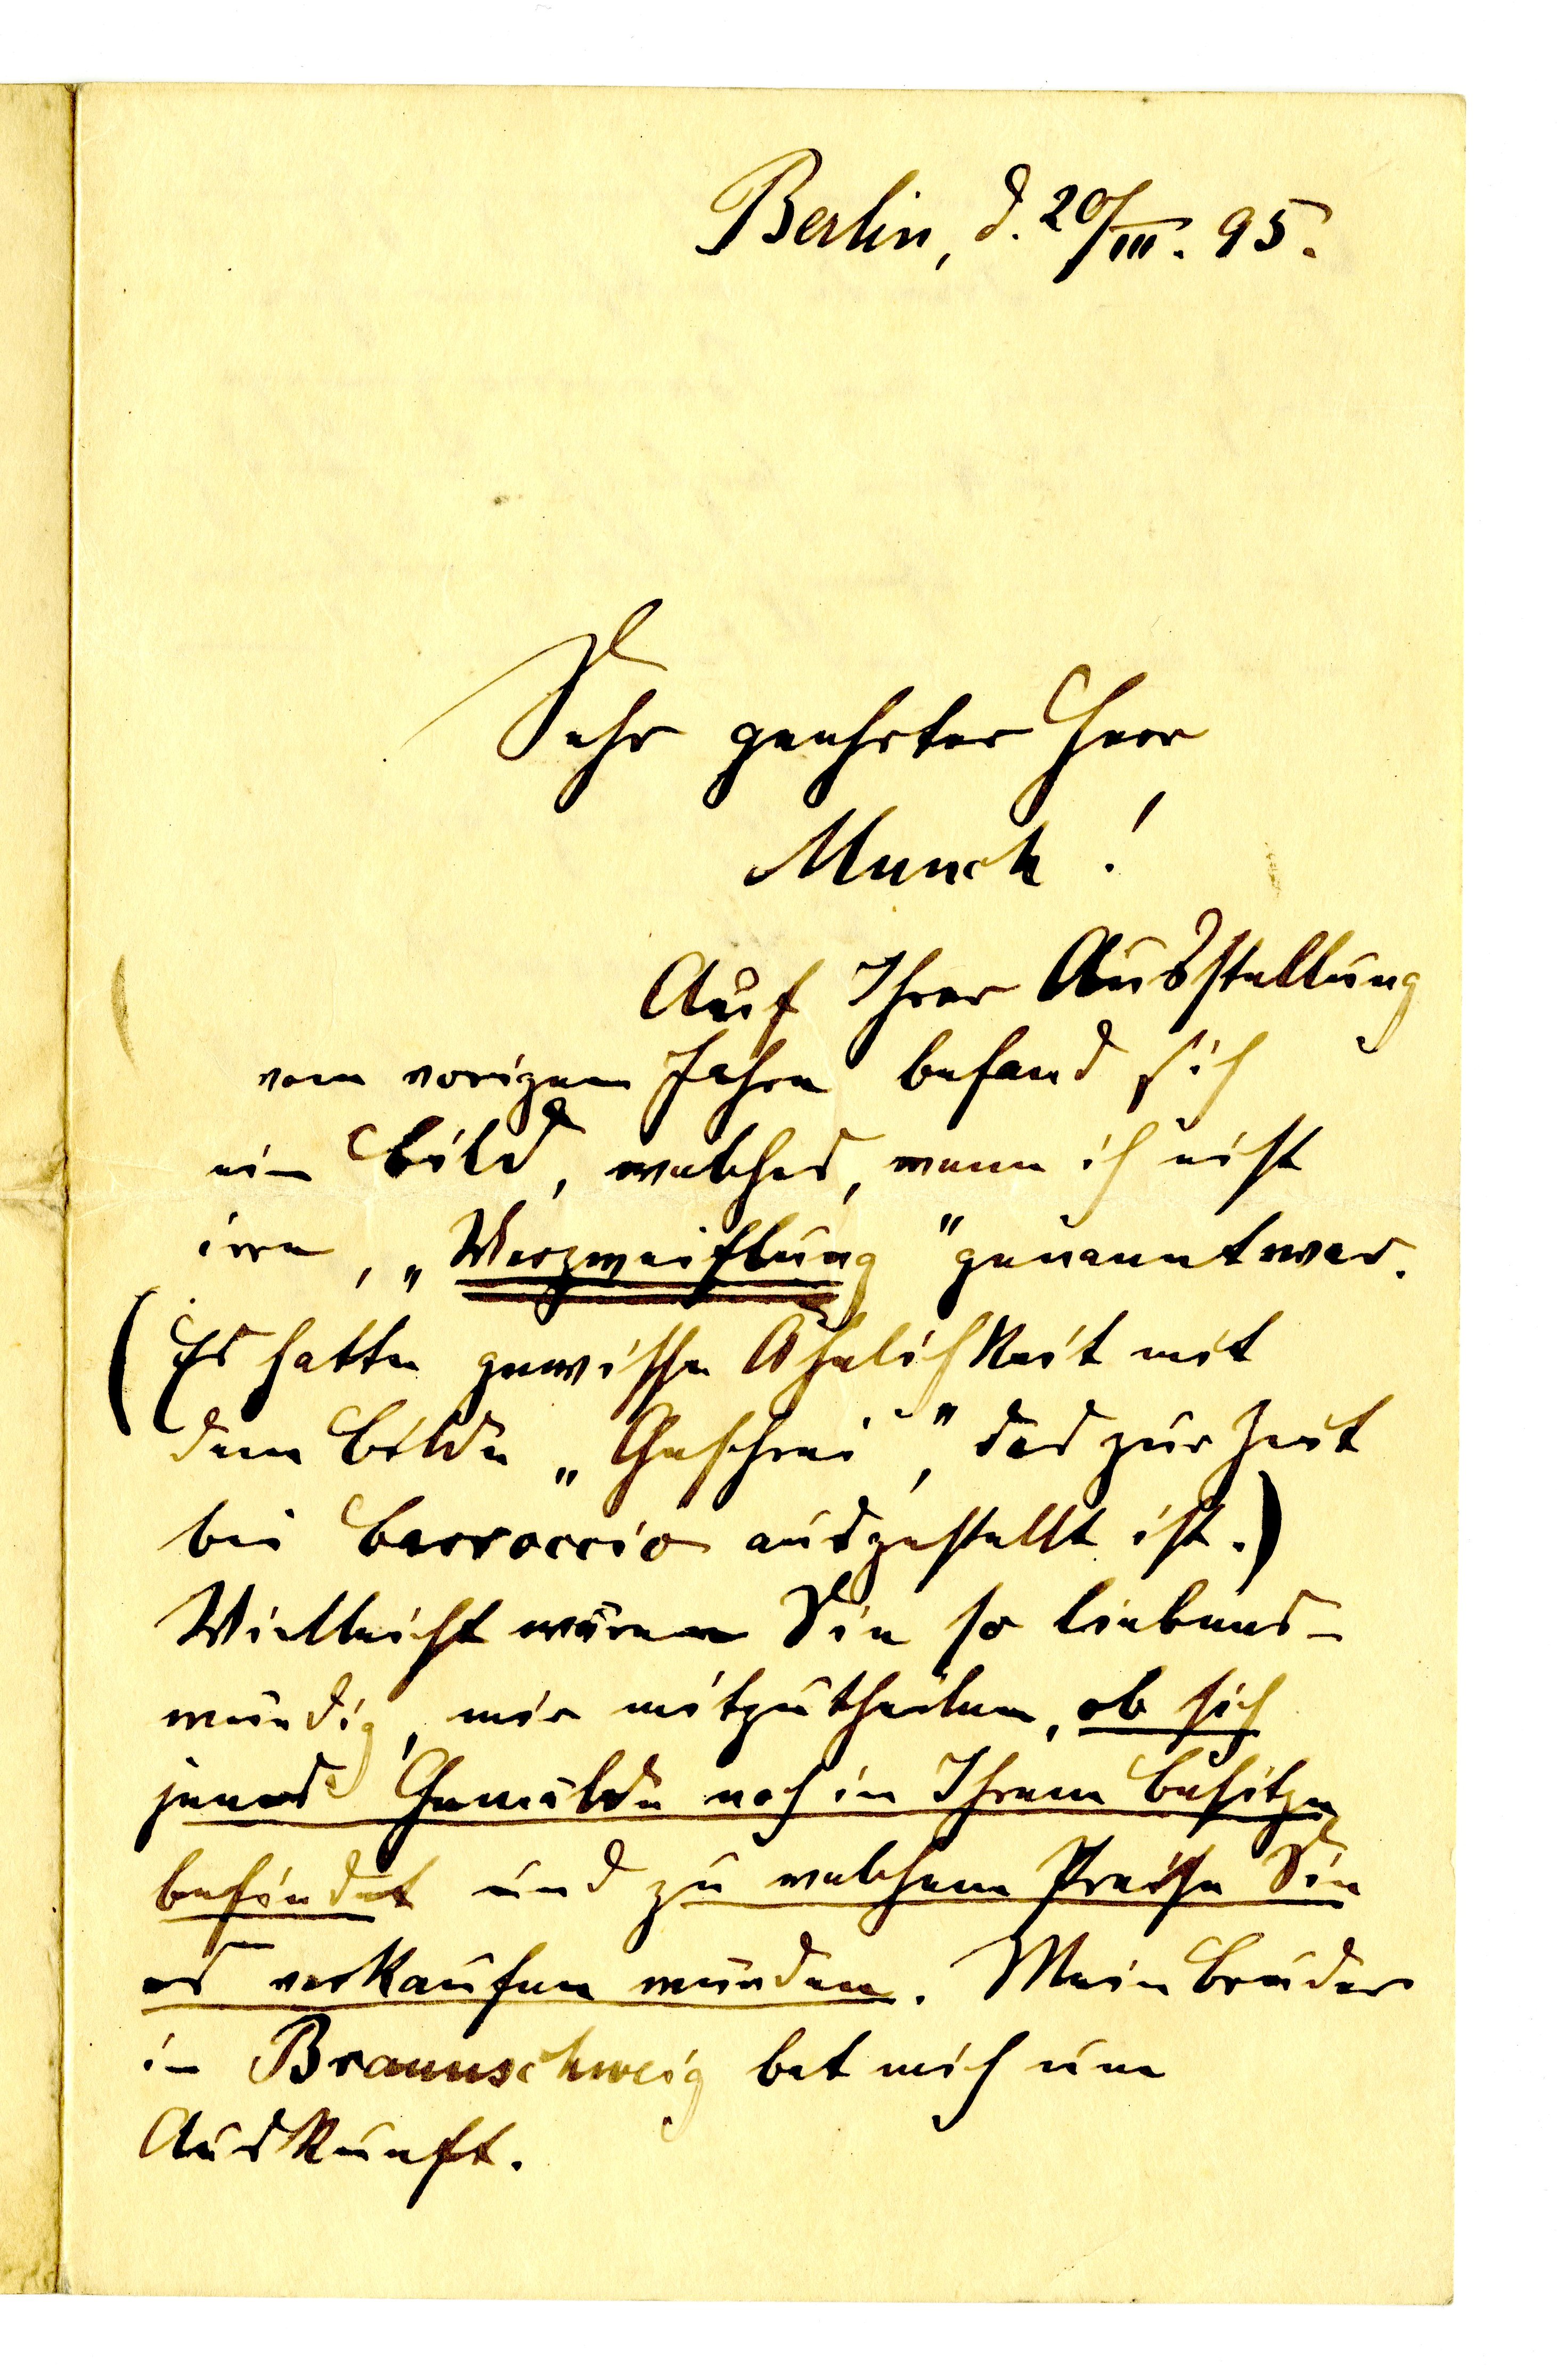 Berlin, d. 20/III. 95.
Sehr geehrter Herr
Munch!
Auf Ihrer Ausstellung
vom vorigem Jahre befand sich
ein Bild, welches, wenn ich nicht
irre, „Verzweiflung" genannt war.
(Es hatte gewisse Ähnlichkeit mit
dem Bilde „Geschrei", das zur Zeit
bei Barroccio ausgestellt ist.)
Vielleicht wären Sie so liebens-
würdig, mir mitzutheilen, ob sich
jenes Gemälde noch in Ihrem Besitze
befindet und zu welchem Preise Sie
es verkaufen würden. Mein Bruder
in Braunschweig bat mich um
Auskunft.